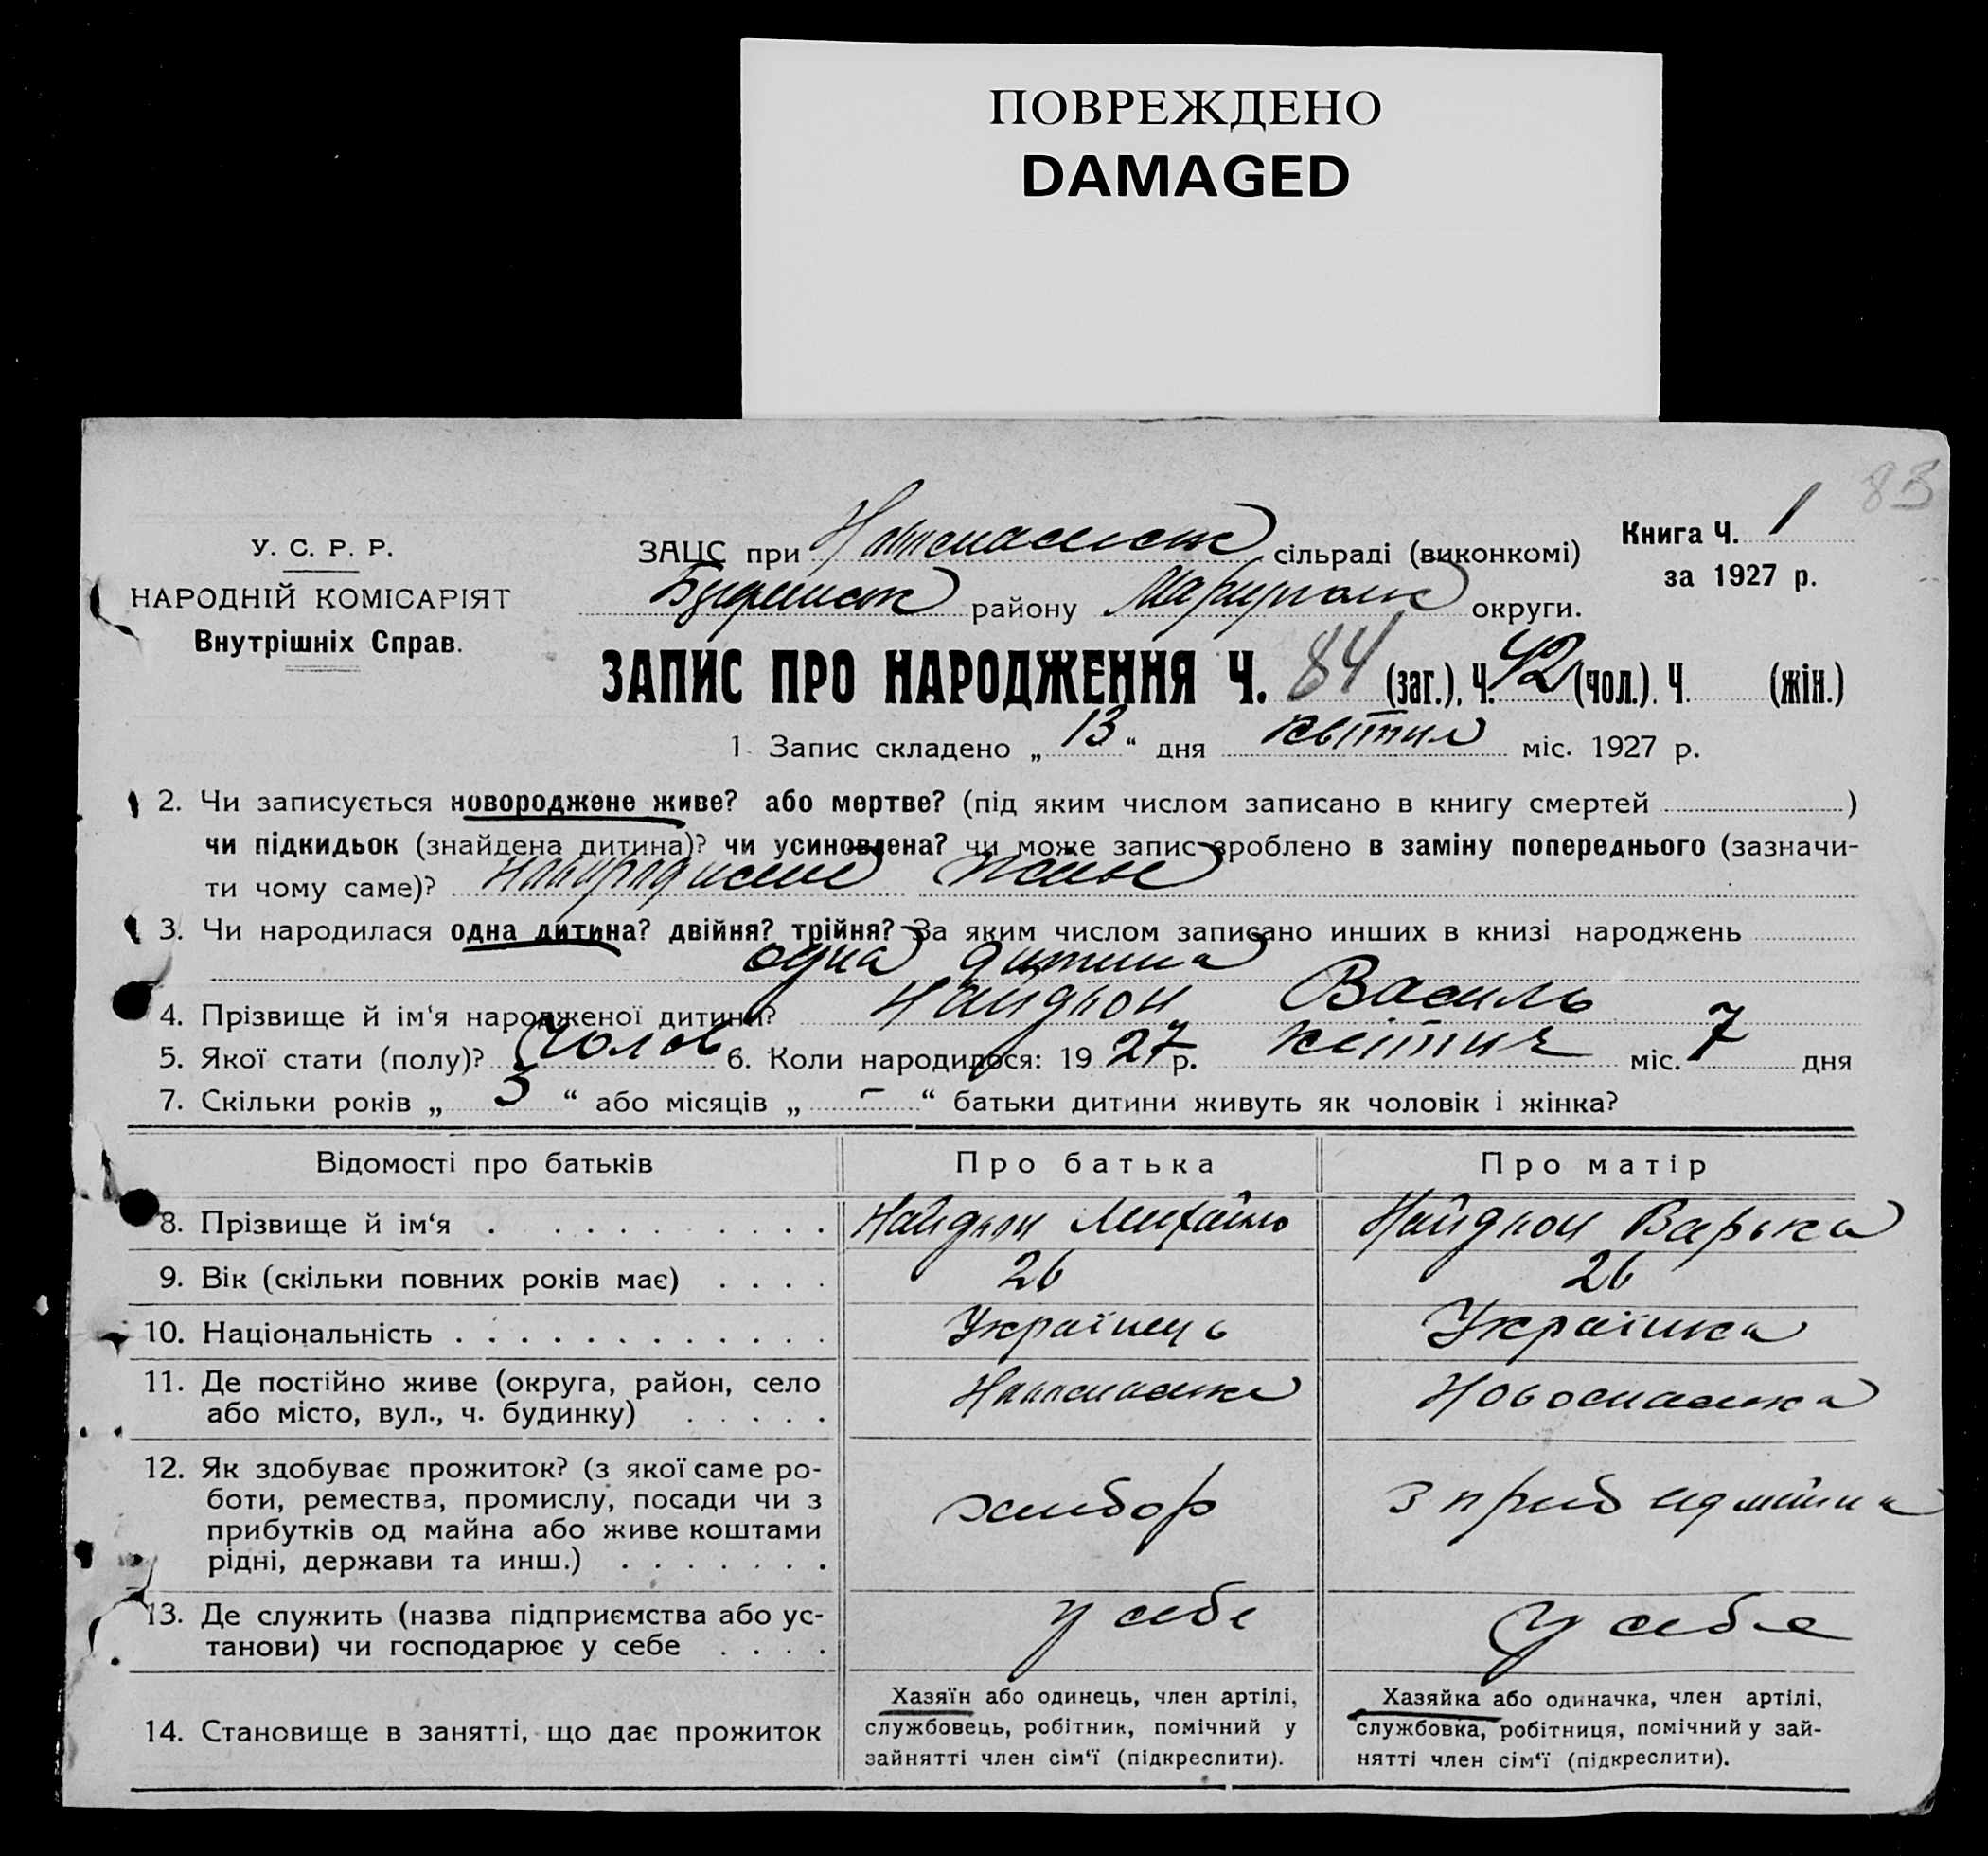 ПОВРЕЖДЕНО
DAMAGED
83
У. С. Р. Р.
НАРОДНІЙ КОМІСАРІЯТ
Внутрішніх Справ.
ЗАЦС при Новоспаськ сільраді (виконкомі)
району Маріуполь округи.
Книга Ч. 1
за 1927 р.
ЗАПИС ПРО НАРОДЖЕННЯ Ч. 84 (заг.), Ч. 42 (чол.). Ч. (жін.)
1. Запис складено „ 13 “ дня квітня міс. 1927 р.
2. Чи записується новороджене живе? або мертве? (під яким числом записано в книгу смертей )
чи підкидьок (знайдена дитина)? чи усиновлена? чи може запис зроблено в заміну попереднього (зазначи-
ти чому саме)? новороджене живе
3. Чи народилася одна дитина? двійня? трійня? За яким числом записано инших в книзі народжень
одна дитина
4. Прізвище й ім‘я народженої дитини? Найдьон Василь
5. Якої стати (полу)? Чолов 6. Коли народилося: 19 27 р. квітня міс. 7 дня
7. Скільки років „ 5 “ або місяців „ – “ батьки дитини живуть як чоловік і жінка?
Відомості про батьків Про батька Про матір
8. Прізвище й ім‘я Найдьон Михайло Найдьон Варька
9. Вік (скільки повних років має) 26 26
10. Національність Українець Українка
11. Де постійно живе (округа, район, село
або місто, вул., ч. будинку) Новоспаська Новоспаська
12. Як здобуває прожиток? (з якої саме ро-
боти, ремества, промислу, посади чи з
прибутків од майна або живе коштами
рідні, держави та инш.) хлибор з приб
13. Де служить (назва підприємства або ус-
танови) чи господарює у себе у себе у себе
14. Становище в занятті, що дає прожиток
Хазяїн або одинець, член артілі,
службовець, робітник, помічний у
зайнятті член сім‘ї (підкреслити).
Хазяйка або одиначка, член артілі,
службовка, робітниця, помічний у зай-
нятті член сім‘ї (підкреслити).